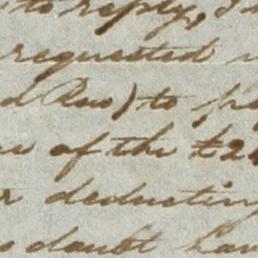 to reply, I
requested
) to
of the £2
deducting
doubt hav